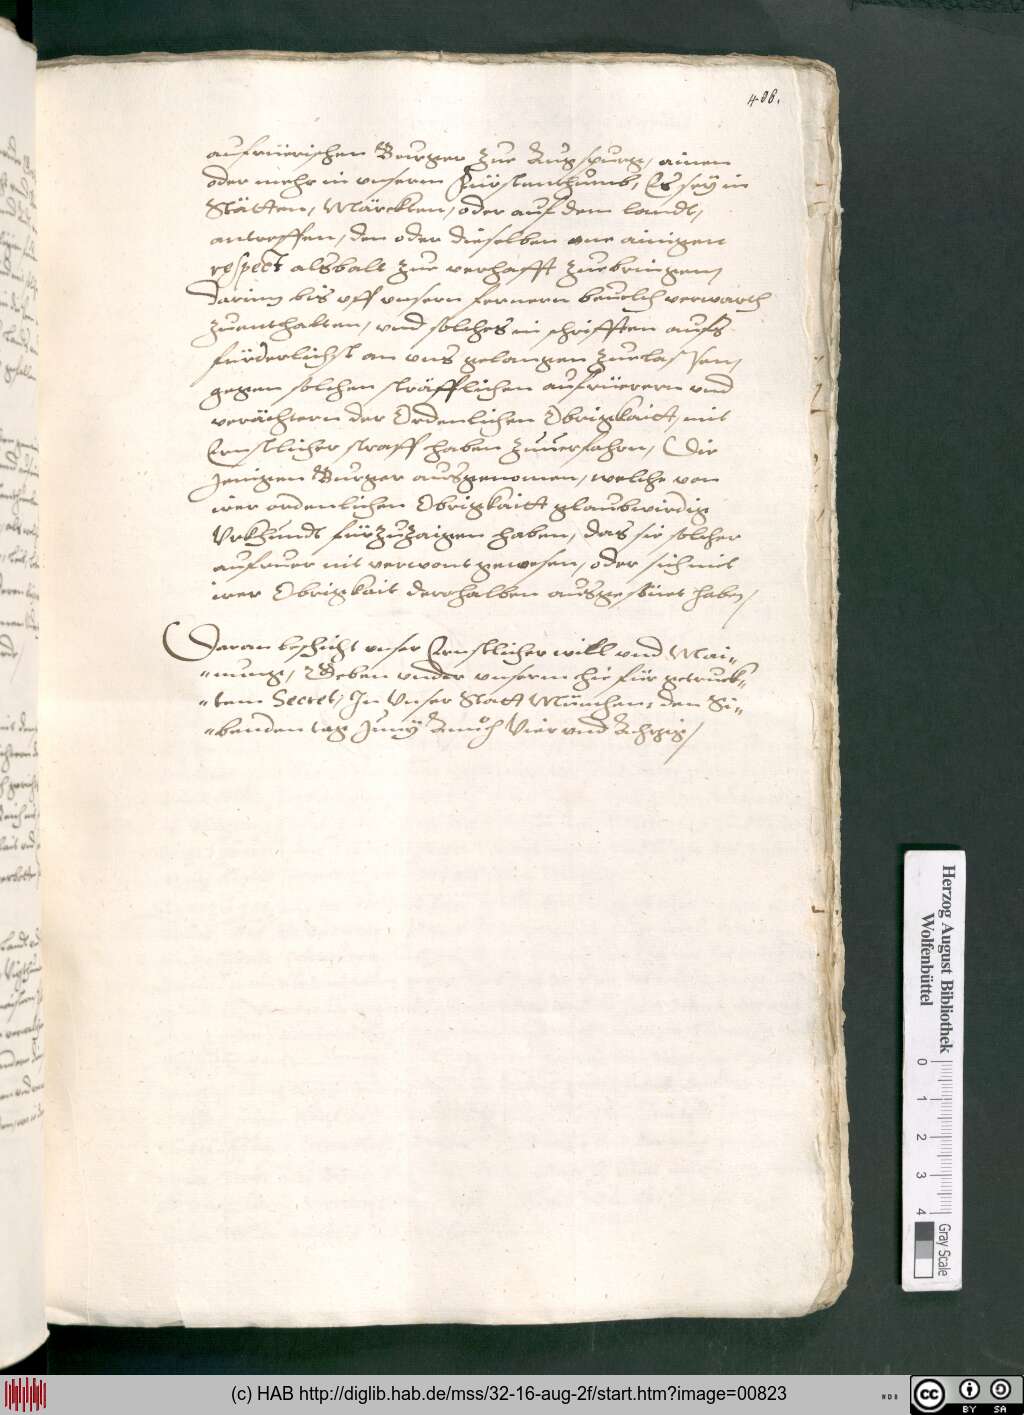 408.
aufrüerischen Burger zue Augspurg, ainen
oder mehr in vnserm Fürstenthumb, Es sey in
Stätten, Märckten, oder auf dem landt,
antreffen, den oder dieselben one ainigen
respect alsbalt zue verhafft zuebringen,
Darinn bis vff vnsern fernern beuelch verwarth
zuenthalten, vnd solches in schrifften aufs
fürderlichst an vns gelangen zuelassen,
gegen solchen sträfflichen aufrüerern vnd
verächtern der Ordenlichen Obrigkaitt, mit
Ernstlicher straff haben zuuerfahrn, Die
Jenigen Burger ausgenomen, welche von
irer ordenlichen Obrigkaitt glaubwirdig
Vrkhundt fürzuzaigen haben, das sie solcher
aufruer nit verwont gewesen, oder sich mit
irer Obrigkait derhalben ausgesünet haben,
Daran beschicht vnser Ernstlicher will vnd Mai-
-nung, Geben vnder vnserm hie für getruck-
-tem Secret, In Vnser Statt München, den Si-
-benden tag Junÿ Annoch Vier vnd Achzig,
Herzog August Bibliothek
Wolfenbüttel
0 1 2 3 4
Gray Scale
(c) HAB http://diglib.hab.de/mss/32-16-aug-2f/start.htm?image=00823
cc BY SA